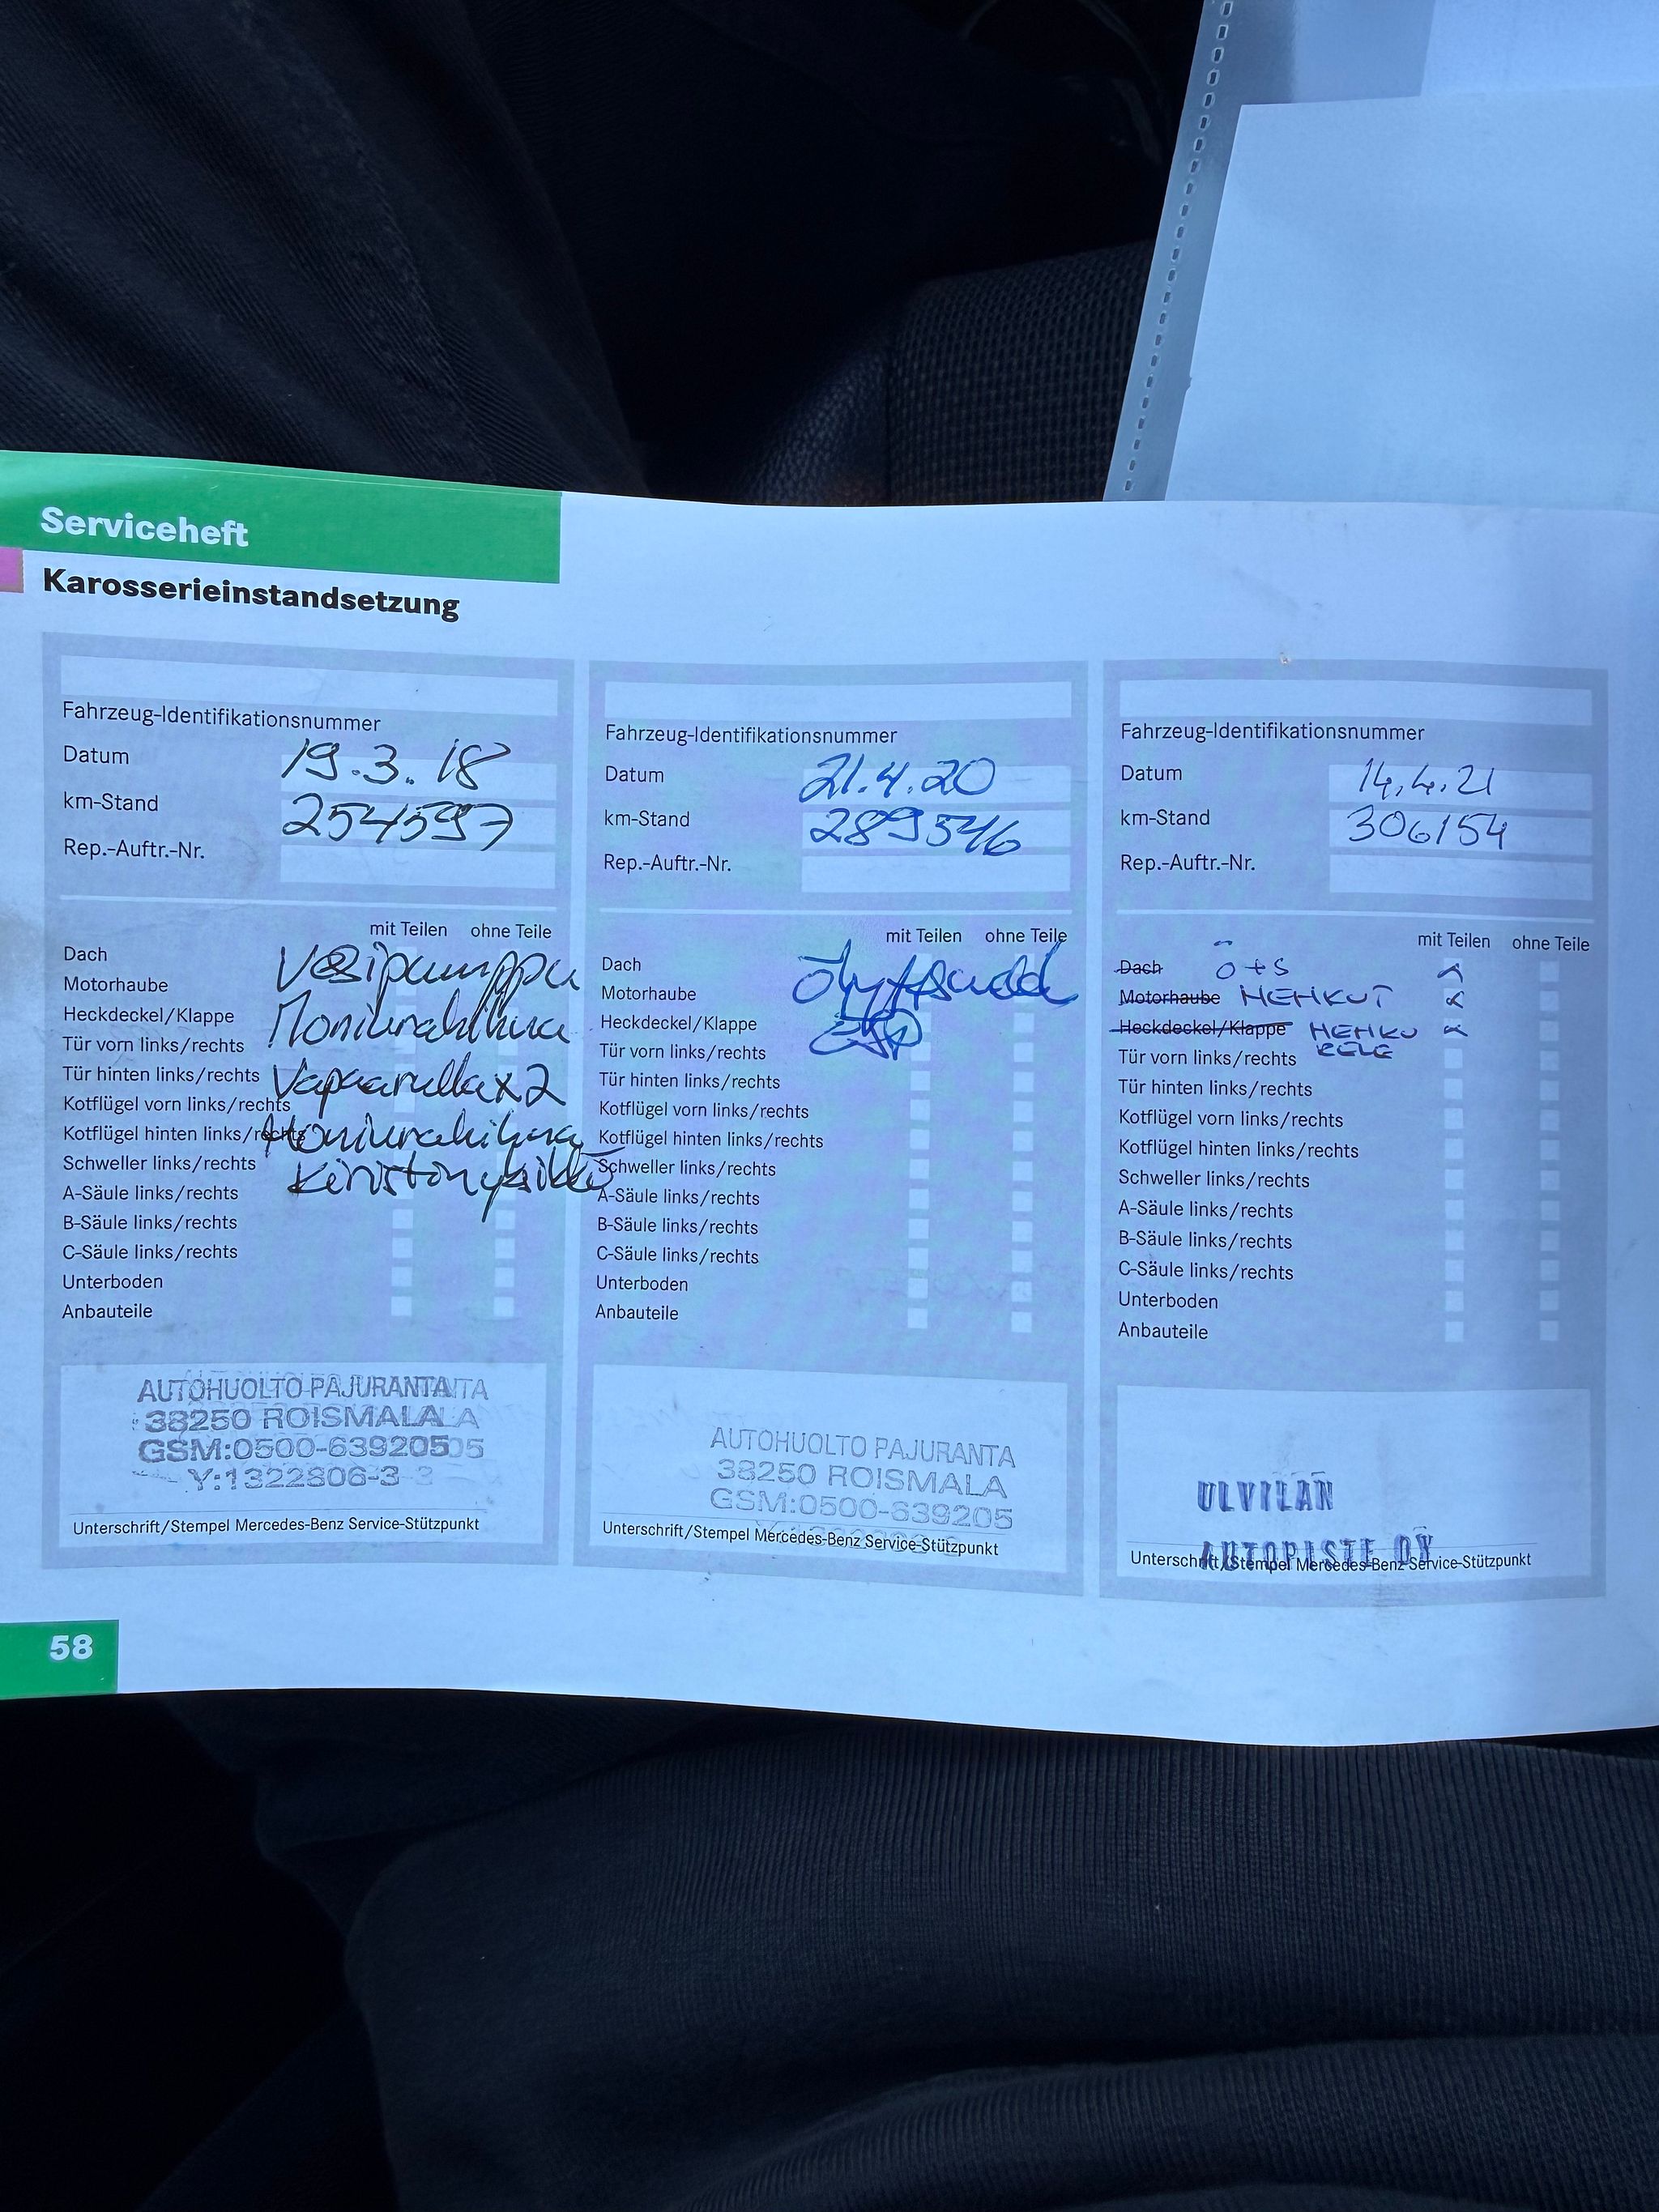 Serviceheft
Karosserieinstandsetzung
Fahrzeug-Identifikationsnummer
Datum 19.3.18
km-Stand 254597
Rep.-Auftr.-Nr.
mit Teilen ohne Teile
Dach Vesipumppu
Motorhaube
Heckdeckel/Klappe Moniurahihna
Tür vorn links/rechts
Tür hinten links/rechts Vapaarulla x2
Kotflügel vorn links/rechts
Kotflügel hinten links/rechts Moniurahihna
Schweller links/rechts Kiristinyksikkö
A-Säule links/rechts
B-Säule links/rechts
C-Säule links/rechts
Unterboden
Anbauteile
AUTOHUOLTO PAJURANTA
38250 ROISMALA
GSM:0500-639205
Y:1322806-3
Unterschrift/Stempel Mercedes-Benz Service-Stützpunkt
Fahrzeug-Identifikationsnummer
Datum 21.4.20
km-Stand 289546
Rep.-Auftr.-Nr.
mit Teilen ohne Teile
Dach
Motorhaube
Heckdeckel/Klappe
Tür vorn links/rechts
Tür hinten links/rechts
Kotflügel vorn links/rechts
Kotflügel hinten links/rechts
Schweller links/rechts
A-Säule links/rechts
B-Säule links/rechts
C-Säule links/rechts
Unterboden
Anbauteile
AUTOHUOLTO PAJURANTA
38250 ROISMALA
GSM:0500-639205
Unterschrift/Stempel Mercedes-Benz Service-Stützpunkt
Fahrzeug-Identifikationsnummer
Datum 14.4.21
km-Stand 306154
Rep.-Auftr.-Nr.
mit Teilen ohne Teile
Dach Ö+S
Motorhaube HEHKUT
Heckdeckel/Klappe HEHKU
RELE
Tür vorn links/rechts
Tür hinten links/rechts
Kotflügel vorn links/rechts
Kotflügel hinten links/rechts
Schweller links/rechts
A-Säule links/rechts
B-Säule links/rechts
C-Säule links/rechts
Unterboden
Anbauteile
ULVILAN
AUTOPISTE OY
Unterschrift/Stempel Mercedes-Benz Service-Stützpunkt
58